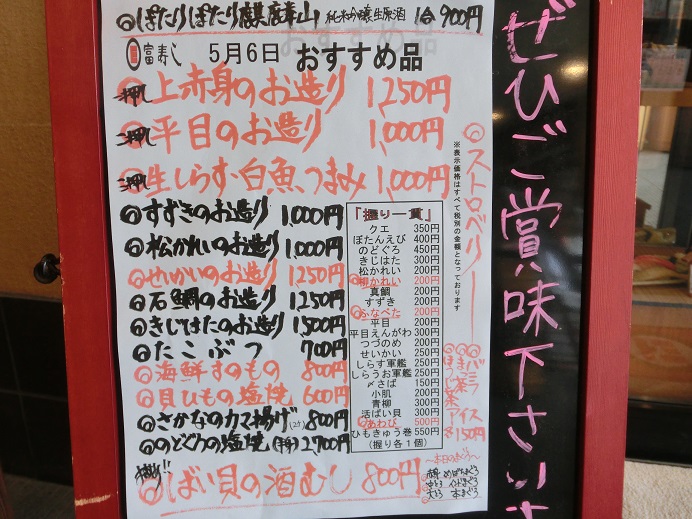 ぽたりぽたり麒麟山 純米吟醸生原酒 1合 900円
富寿し 5月6日 おすすめ品
一押し 上赤身のお造り 1,250円
一押し 平目のお造り 1,000円
一押し 生しらす・白魚つまみ 1,000円
◎すずきのお造り 1,000円
◎松かれいのお造り 1,000円
◎せいかいのお造り 1250円
◎石鯛のお造り 1250円
◎きじはたのお造り 1,500円
◎たこぶつ 700円
◎海鮮すのもの 800円
◎貝ひもの塩焼 600円
◎さかなのカマ揚げ(2ケ) 800円
◎のどぐろの塩焼(半身) 2,700円
◎ばい貝の酒むし 800円
「握り一貫」
クエ 350円
ぼたんえび 400円
のどぐろ 450円
きじはた 300円
松かれい 200円
◎柳かれい 200円
真鯛 200円
すずき 200円
◎ふなべた 200円
平目 200円
平目えんがわ 300円
つづのめ 200円
せいかい 250円
しらす軍艦 250円
しらうお軍艦 250円
〆さば 150円
小肌 200円
青柳 300円
活ばい貝 300円
◎あわび 500円
ひもきゅう巻 550円
(握り各1個)
※表示価格はすべて税別の金額となっております
◎ストロベリー
◎バニラ
◎まっ茶
◎ほうじ茶
アイス
各150円
~本日のまぐろ~
赤身 めばちまぐろ
中とろ インドまぐろ
大とろ 本まぐろ
ぜひご賞味下さいませ